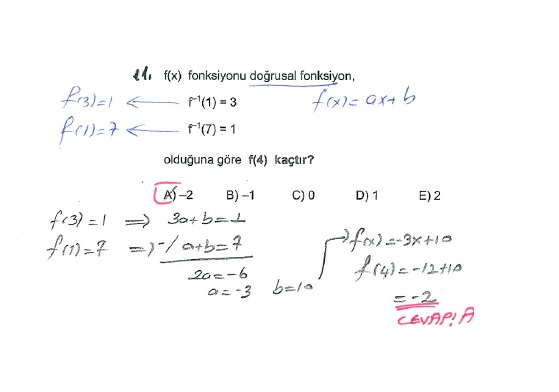 11. f(x) fonksiyonu doğrusal fonksiyon,
f(3)=1 ← f⁻¹(1) = 3 f(x)=ax+b
f(1)=7 ← f⁻¹(7) = 1
olduğuna göre f(4) kaçtır?
A) –2 B) –1 C) 0 D) 1 E) 2
f(3)=1 ⇒ 3a+b=1
f(1)=7 ⇒ -/ a+b=7 → f(x)=-3x+10
2a=-6 f(4)=-12+10
a=-3 b=10 =-2
CEVAP! A